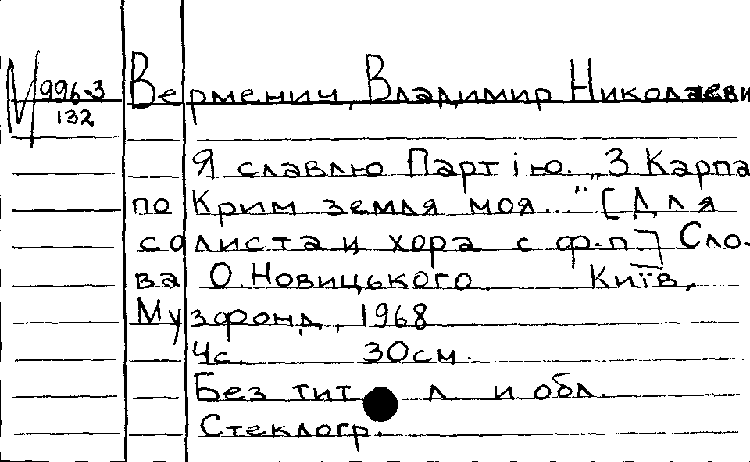 996-3
132
Верменич, Владимир Николаеви
Я славлю Партію. „З Карпа
по Крим земля моя..." [Для
солиста и хора с ф.-п.] Сло-
ва О. Новицького. Київ,
Музфонд, 1968
4с. 30см.
Без тит л и обл.
Стеклогр.